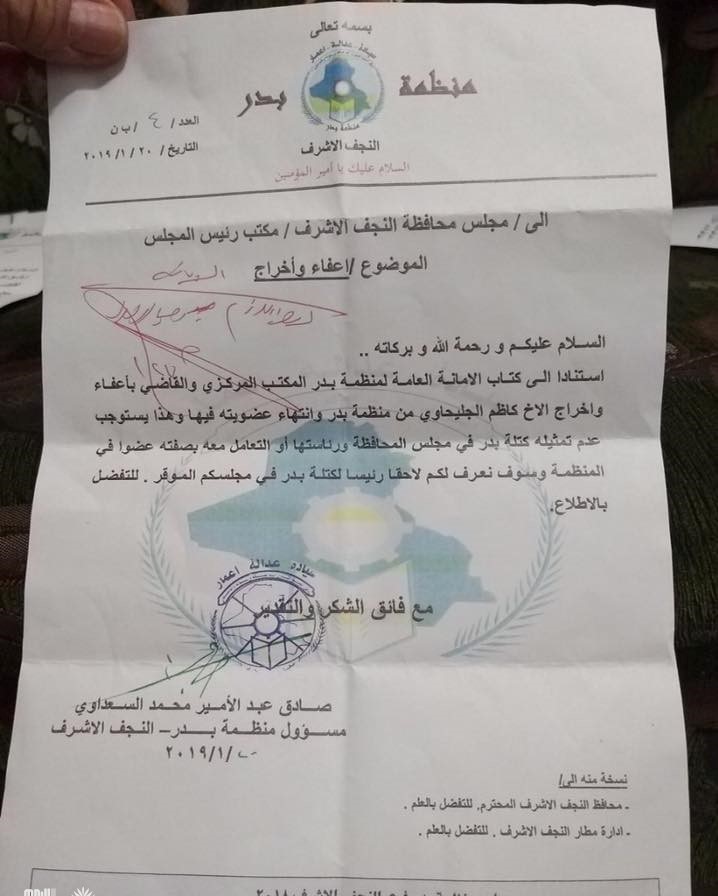 بسمه تعالى
سيادة عدالة اعمار
منظمة بدر
منظمة بدر
النجف الاشرف
السلام عليك يا أمير المؤمنين
العدد / ٤ / ب ن
التاريخ / ٢٠ / ١ / ٢٠١٩
الى / مجلس محافظة النجف الاشرف / مكتب رئيس المجلس
الموضوع / اعفاء وأخراج
السلام عليكم و رحمة الله و بركاته ..
استنادا الى كتاب الامانة العامة لمنظمة بدر المكتب المركزي والقاضي بأعفاء
واخراج الاخ كاظم الجليحاوي من منظمة بدر وانتهاء عضويته فيها وهذا يستوجب
عدم تمثيله كتلة بدر في مجلس المحافظة ورئاستها أو التعامل معه بصفته عضوا في
المنظمة وسوف نعرف لكم لاحقا رئيسا لكتلة بدر في مجلسكم الموقر . للتفضل
بالاطلاع.
مع فائق الشكر والتقدير
سيادة عدالة اعمار
صادق عبد الأمير محمد السعداوي
مسؤول منظمة بدر – النجف الاشرف
٢٠١٩/١/٢٠
نسخة منه الى/
- محافظ النجف الاشرف المحترم. للتفضل بالعلم .
- ادارة مطار النجف الاشرف . للتفضل بالعلم .